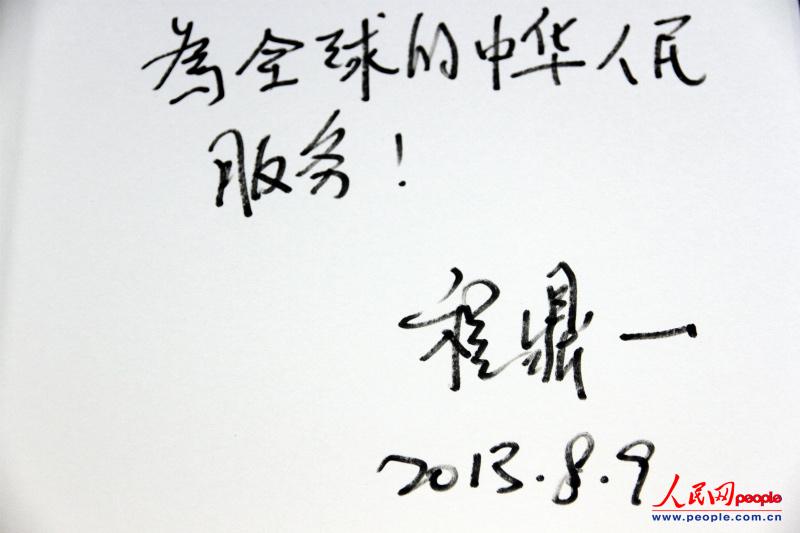 為全球的中华人民
服务！
程鼎一
2013.8.9
人民网 people
www.people.com.cn